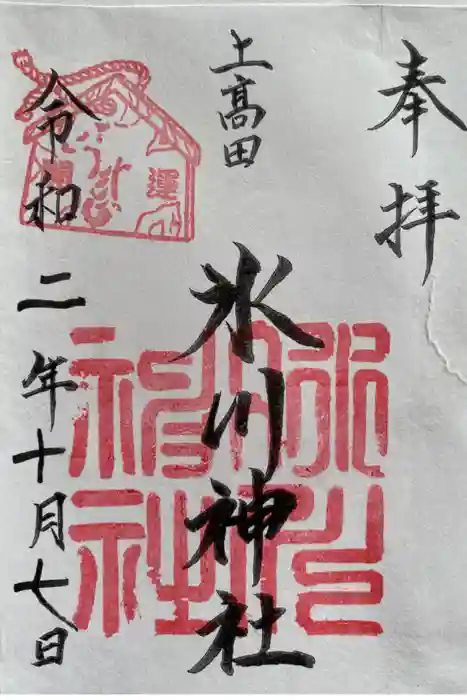 奉拝
上高田
氷川神社
令和二年十月七日
開運